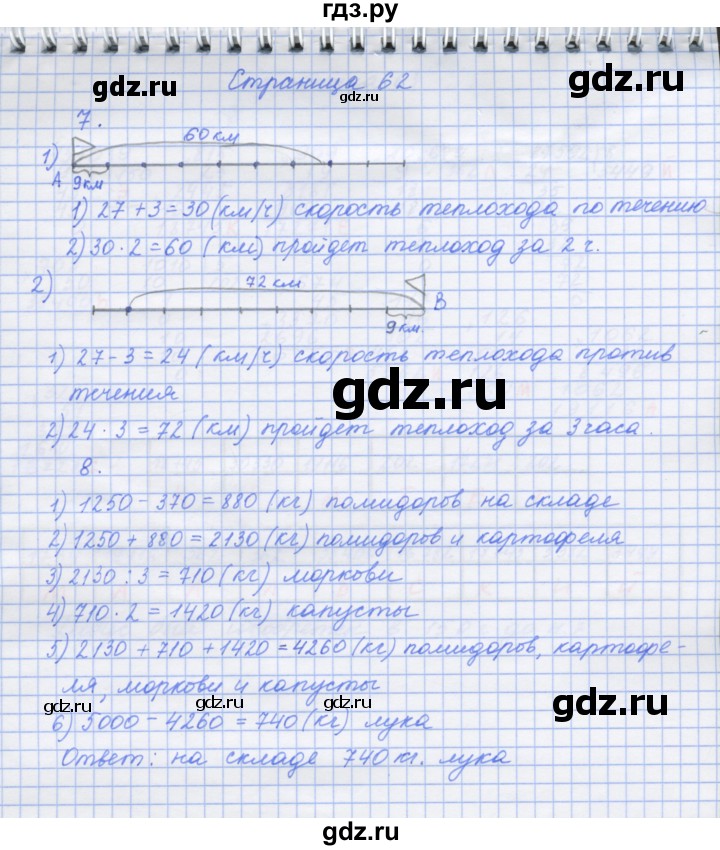 гдз.ру
gdz.ru
gdz.ru
Страница 62
gdz.ru
7.
60 км
1)
А
9км
1) 27 + 3 = 30 (км/ч) скорость теплохода по течению
2) 30 · 2 = 60 (км) пройдет теплоход за 2 ч.
2)
72 км
В
9 км.
1) 27 - 3 = 24 (км/ч) скорость теплохода против
течения
gdz.ru
2) 24 · 3 = 72 (км) пройдет теплоход за 3 часа.
8.
1) 1250 - 370 = 880 (кг) помидоров на складе
2) 1250 + 880 = 2130 (кг) помидоров и картофеля
3) 2130 : 3 = 710 (кг) моркови
4) 710 · 2 = 1420 (кг) капусты
5) 2130 + 710 + 1420 = 4260 (кг) помидоров, картофе-
ля, моркови и капусты
gdz.ru
gdz.ru
gdz.ru
gdz.ru
6) 5000 - 4260 = 740 (кг) лука
Ответ: на складе 740 кг. лука
gdz.ru